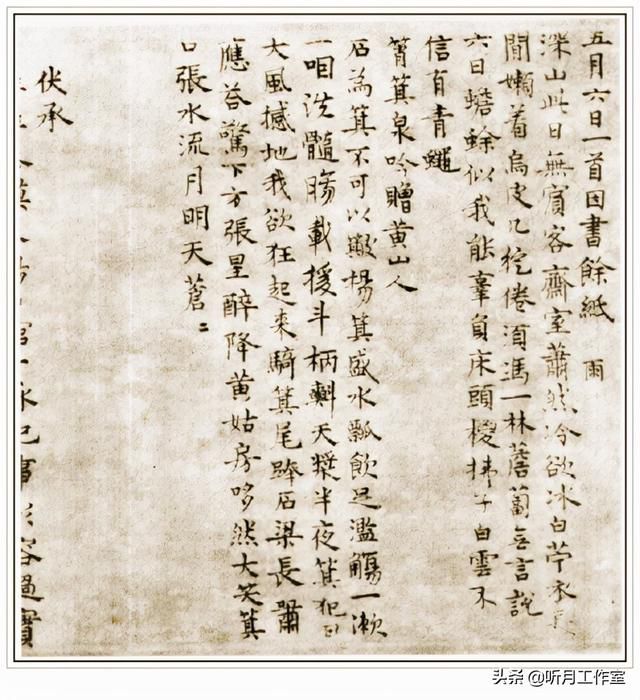 五月六日一首因書餘紙 雨
深山此日無賓客齋室蕭然冷欲冰白苧衣
間嬾着烏皮几穩倦須馮一林薝蔔無言說
六日蟾蜍似我能辜負床頭椶拂子白雲不
信有青蠅
筲箕泉吟贈黄山人
石為箕不可以簸揚箕盛水瓢飲足濫觴一漱
一咽洗髓腸載援斗柄㪺天漿半夜箕犯
大風撼地我欲狂起来騎箕尾踏石梁長嘯
應荅驚下方張星醉降黄姑房哆然大笑箕
口張水流月明天蒼〻
伏承
事形容過實
头条 @听月工作室